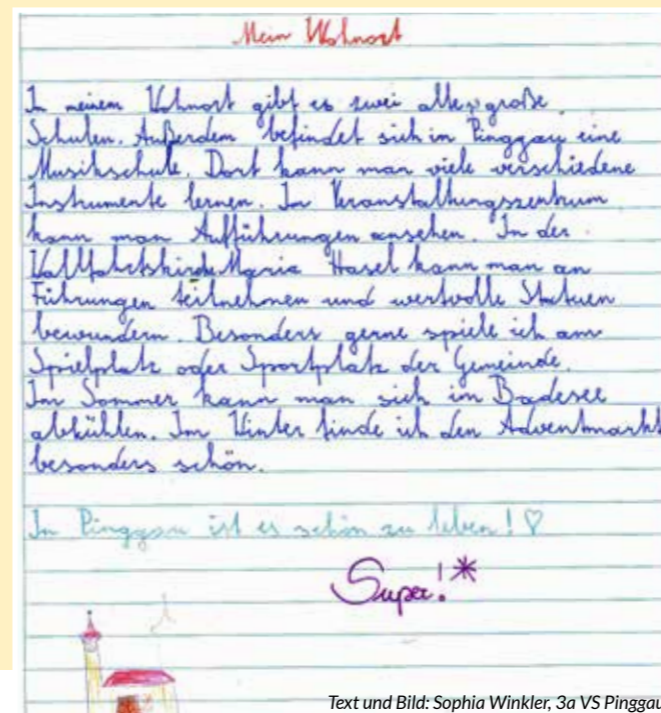 Mein Wohnort
In meinem Wohnort gibt es zwei alte, große
Schulen. Außerdem befindet sich in Pinggau eine
Musikschule. Dort kann man viele verschiedene
Instrumente lernen. Im Veranstaltungszentrum
kann man Aufführungen ansehen. In der
Wallfahrtskirche Maria Hasel kann man an
Führungen teilnehmen und wertvolle Statuen
bewundern. Besonders gerne spiele ich am
Spielplatz oder Sportplatz der Gemeinde.
Im Sommer kann man sich im Badesee
abkühlen. Im Winter finde ich den Adventmarkt
besonders schön.
In Pinggau ist es schön zu leben! ♡
Super!*
Text und Bild: Sophia Winkler, 3a VS Pinggau